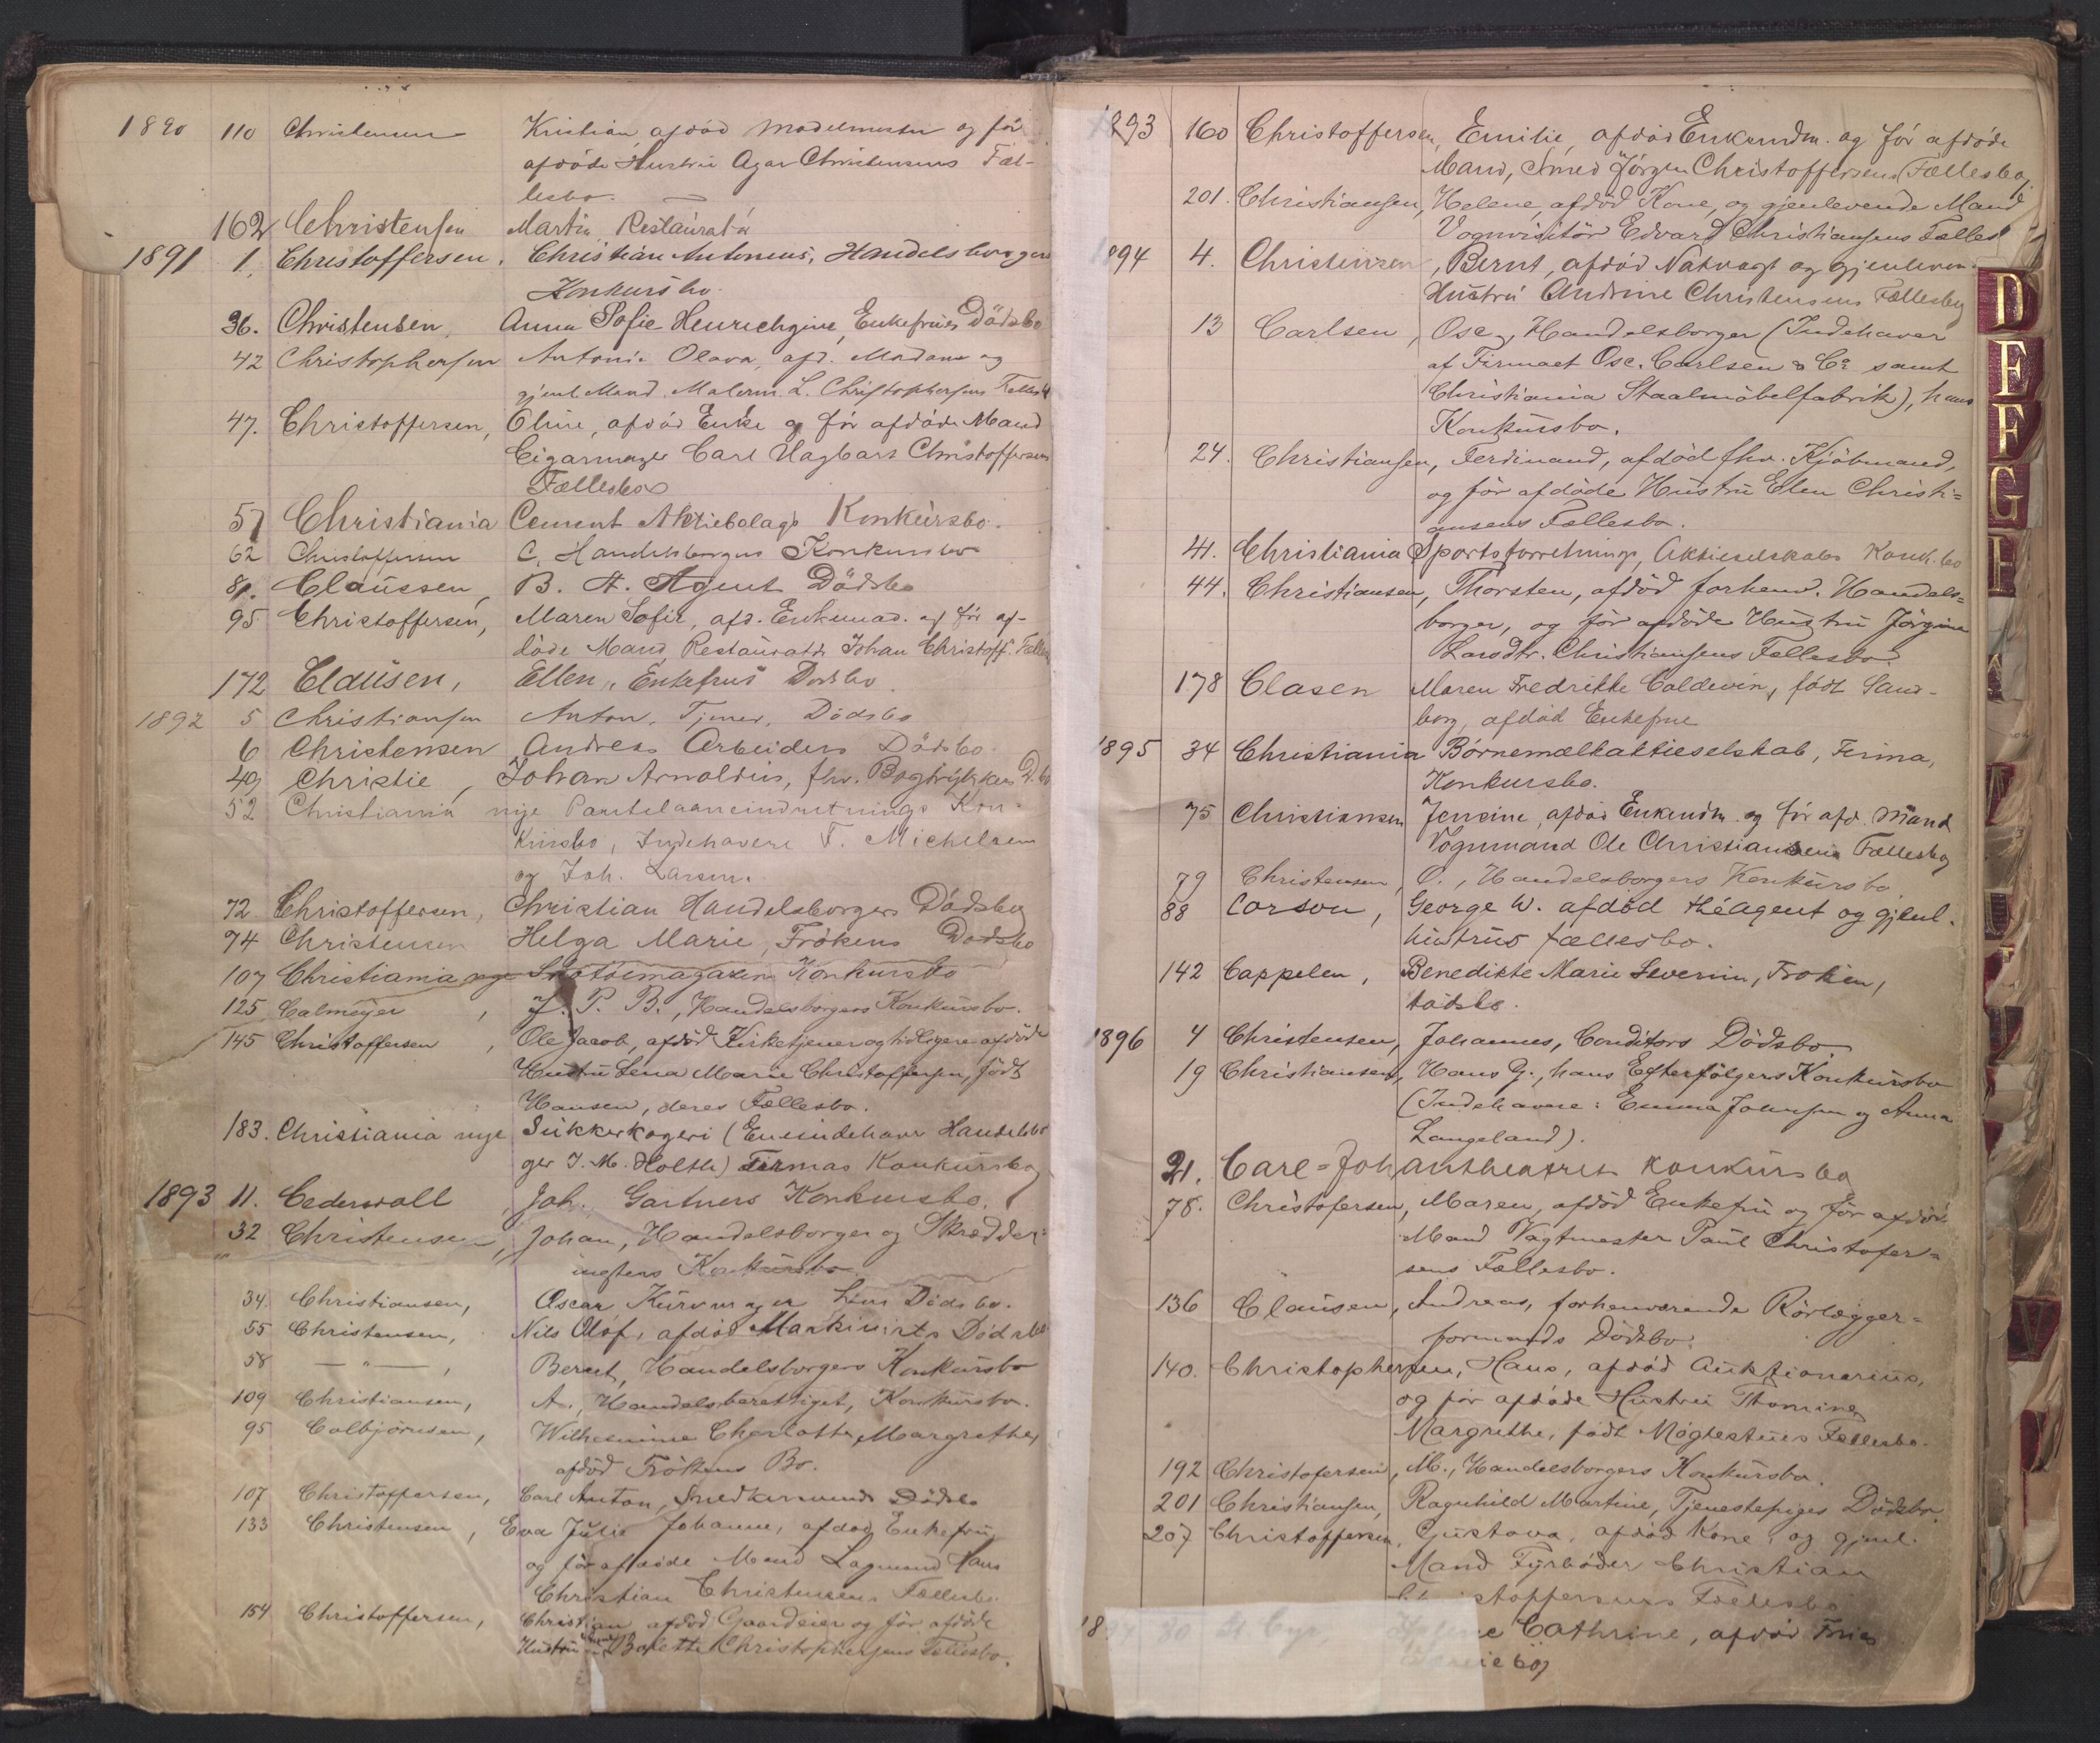 1890 110 Christensen Kristian, afdöd Modelmester og för
afdöde Hustru Agar Christensens Fæl-
lesbo.
162 Christensen Martin Restauratör
1891 1. Christoffersen, Christian Antonius, Handelsborgers
Konkursbo.
36. Christensen, Anna Sofie Henrichgine, Enkefrues Dödsbo
42 Christophersen Antonie Olava, afd. Madame og
gjenl. Mand, Malerm. L. Christophersens Fællesb
47. Christoffersen, Oline, afdöd Enke og för afdöde Mand
Cigarmager Carl Hagbart Christoffersens
Fællesbo
57 Christiania Cement Aktiebolags Konkursbo.
62 Christoffersen C. Handelsborgers Konkursbo
81. Claussen, B. A. Agent Dödsbo
95 Christoffersen, Maren Sofie, afd. Enkemad. og för af-
döde Mand, Restauratör Johan Christoff. Fælles
172 Clausen, Ellen, Enkefrus Dödsbo
1892 5 Christiansen Anton, Tjener, Dödsbo
6 Christensen Andreas Arbeiders Dödsbo.
49 Christie, Johan Arnoldus, fhv. Bogtrykkers D.bo
52 Christiania nye Pantelaaneindretnings Kon-
kursbo, Indehavere F. Michelsen
og Joh. Larsen.
72 Christoffersen, Christian Handelsborgers Dödsbo
74 Christensen Helga Marie, Frökens Dödsbo
107 Christiania nye Skotöimagazin Konkursbo
125 Calmeyer, J. P. B., Handelsborgers Konkursbo.
145 Christoffersen, Ole Jacob, afdöd Kirketjener og tidligere afdöde
Hustru Lena Marie Christoffersen, født
Hansen, deres Fællesbo.
183. Christiania nye Sukkerkogeri (Eneindehaver Handelsbor
ger J. M. Holth) Firmas Konkursbo
1893 11. Cederwall, Joh. Gartners Konkursbo.
32 Christensen, Johan, Handelsborger og Skrædder-
mesters Konkursbo
34. Christiansen, Oscar Kurvmager hans Dödsbo.
55 Christensen, Nils Olof, afdöd Maskinists Dödsbo
58 — " —, Bernt, Handelsborgers Konkursbo
109 Christiansen, A., Handelsberettiget, Konkursbo.
95 Colbjørnsen, Wilhelmine Charlotte Margrethe,
afdöd Frökens Bo.
107 Christoffersen, Carl Anton, Snedkersvends Dödsbo
133 Christensen, Eva Julie Johanne, afdöd Enkefru,
og för afdöde Mand Lagmand Hans
Christian Christensens Fællesbo
154 Christoffersen, Christian afdöd Gaardeier og för afdöde
Hustru Bolette Christophersens Fællesbo.
1893 160 Christoffersen, Emilie, afdöd Enkemdm. og för afdöde
Mand, Smed Jörgen Christoffersens Fællesbo.
201. Christiansen, Helene, afdöd Kone, og gjenlevende Mand
Vognvisitör Edvard Christiansens Fælles
1894 4. Christensen, Bernt, afdöd Natvagt og gjenleven.
Hustru Andrine Christensens Fællesbo
13 Carlsen, Osc., Handelsborger (Indehaver
af Firmaet Osc. Carlsen & Co samt
Christiania Staalmöbelfabrik), hans
Konkursbo.
24. Christiansen, Ferdinand, afdöd fhv. Kjöbmand,
og för afdöde Hustru Ellen Christi=
ansens Fællesbo.
41. Christiania Sportsforretnings, Aktieselskabs Konk.bo
44. Christiansen, Thorsten, afdöd forhenv. Handels=
borger, og för afdöde Hustru Jörgine
Larsdtr. Christiansens Fællesbo.
178 Clasen Maren Fredrikke Coldevin, född Sand-
borg, afdöd Enkefrue
1895 34 Christiania Börnemælkaktieselskab, Firma,
Konkursbo.
75 Christiansen Jensine, afdöd Enkemdm. og för afd. Mand
Vognmand Ole Christiansens Fællesbo
79 Christensen, O., Handelsborgers Konkursbo
88 Corson, George W. afdöd théagent og gjenl.
hustrus fællesbo.
142 Cappelen, Benedikte Marie Severin, Fröken,
dödsbo.
1896 4 Christensen, Johannes, Conditors Dödsbo.
19 Christiansen, Hans G., hans Efterfölgers Konkursbo
(Indehavere: Emma Johnsen og Anna
Langeland).
21. Carl=Johantheatrets Konkursbo
78. Christofersen, Maren, afdöd Enkefru og för afdöd
Mand Vagtmester Paul Christofer=
sens Fællesbo.
136 Clausen, Andreas, forhenværende Rörlægger=
formands Dödsbo.
140. Christophersen, Hans, afdöd Auktionarius,
og för afdöde Hustru Thomine
Margrethe, född Møglestues Fællesbo.
192 Christofersen, M., Handelsborgers Konkursbo.
201 Christiansen, Ragnhild Martine, Tjenestepiges Dödsbo.
207 Christoffersen, Gustava, afdöd Kone, og gjenl.
Mand Fyrböder Christian
stoffersens Fællesbo
80 Cathrine, afdöd Frues
D
E
F
G
I